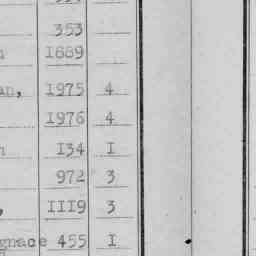 353
1889
an, 1975 4
1976 4
134 I
972 3
, III9 3
gnace 455 I